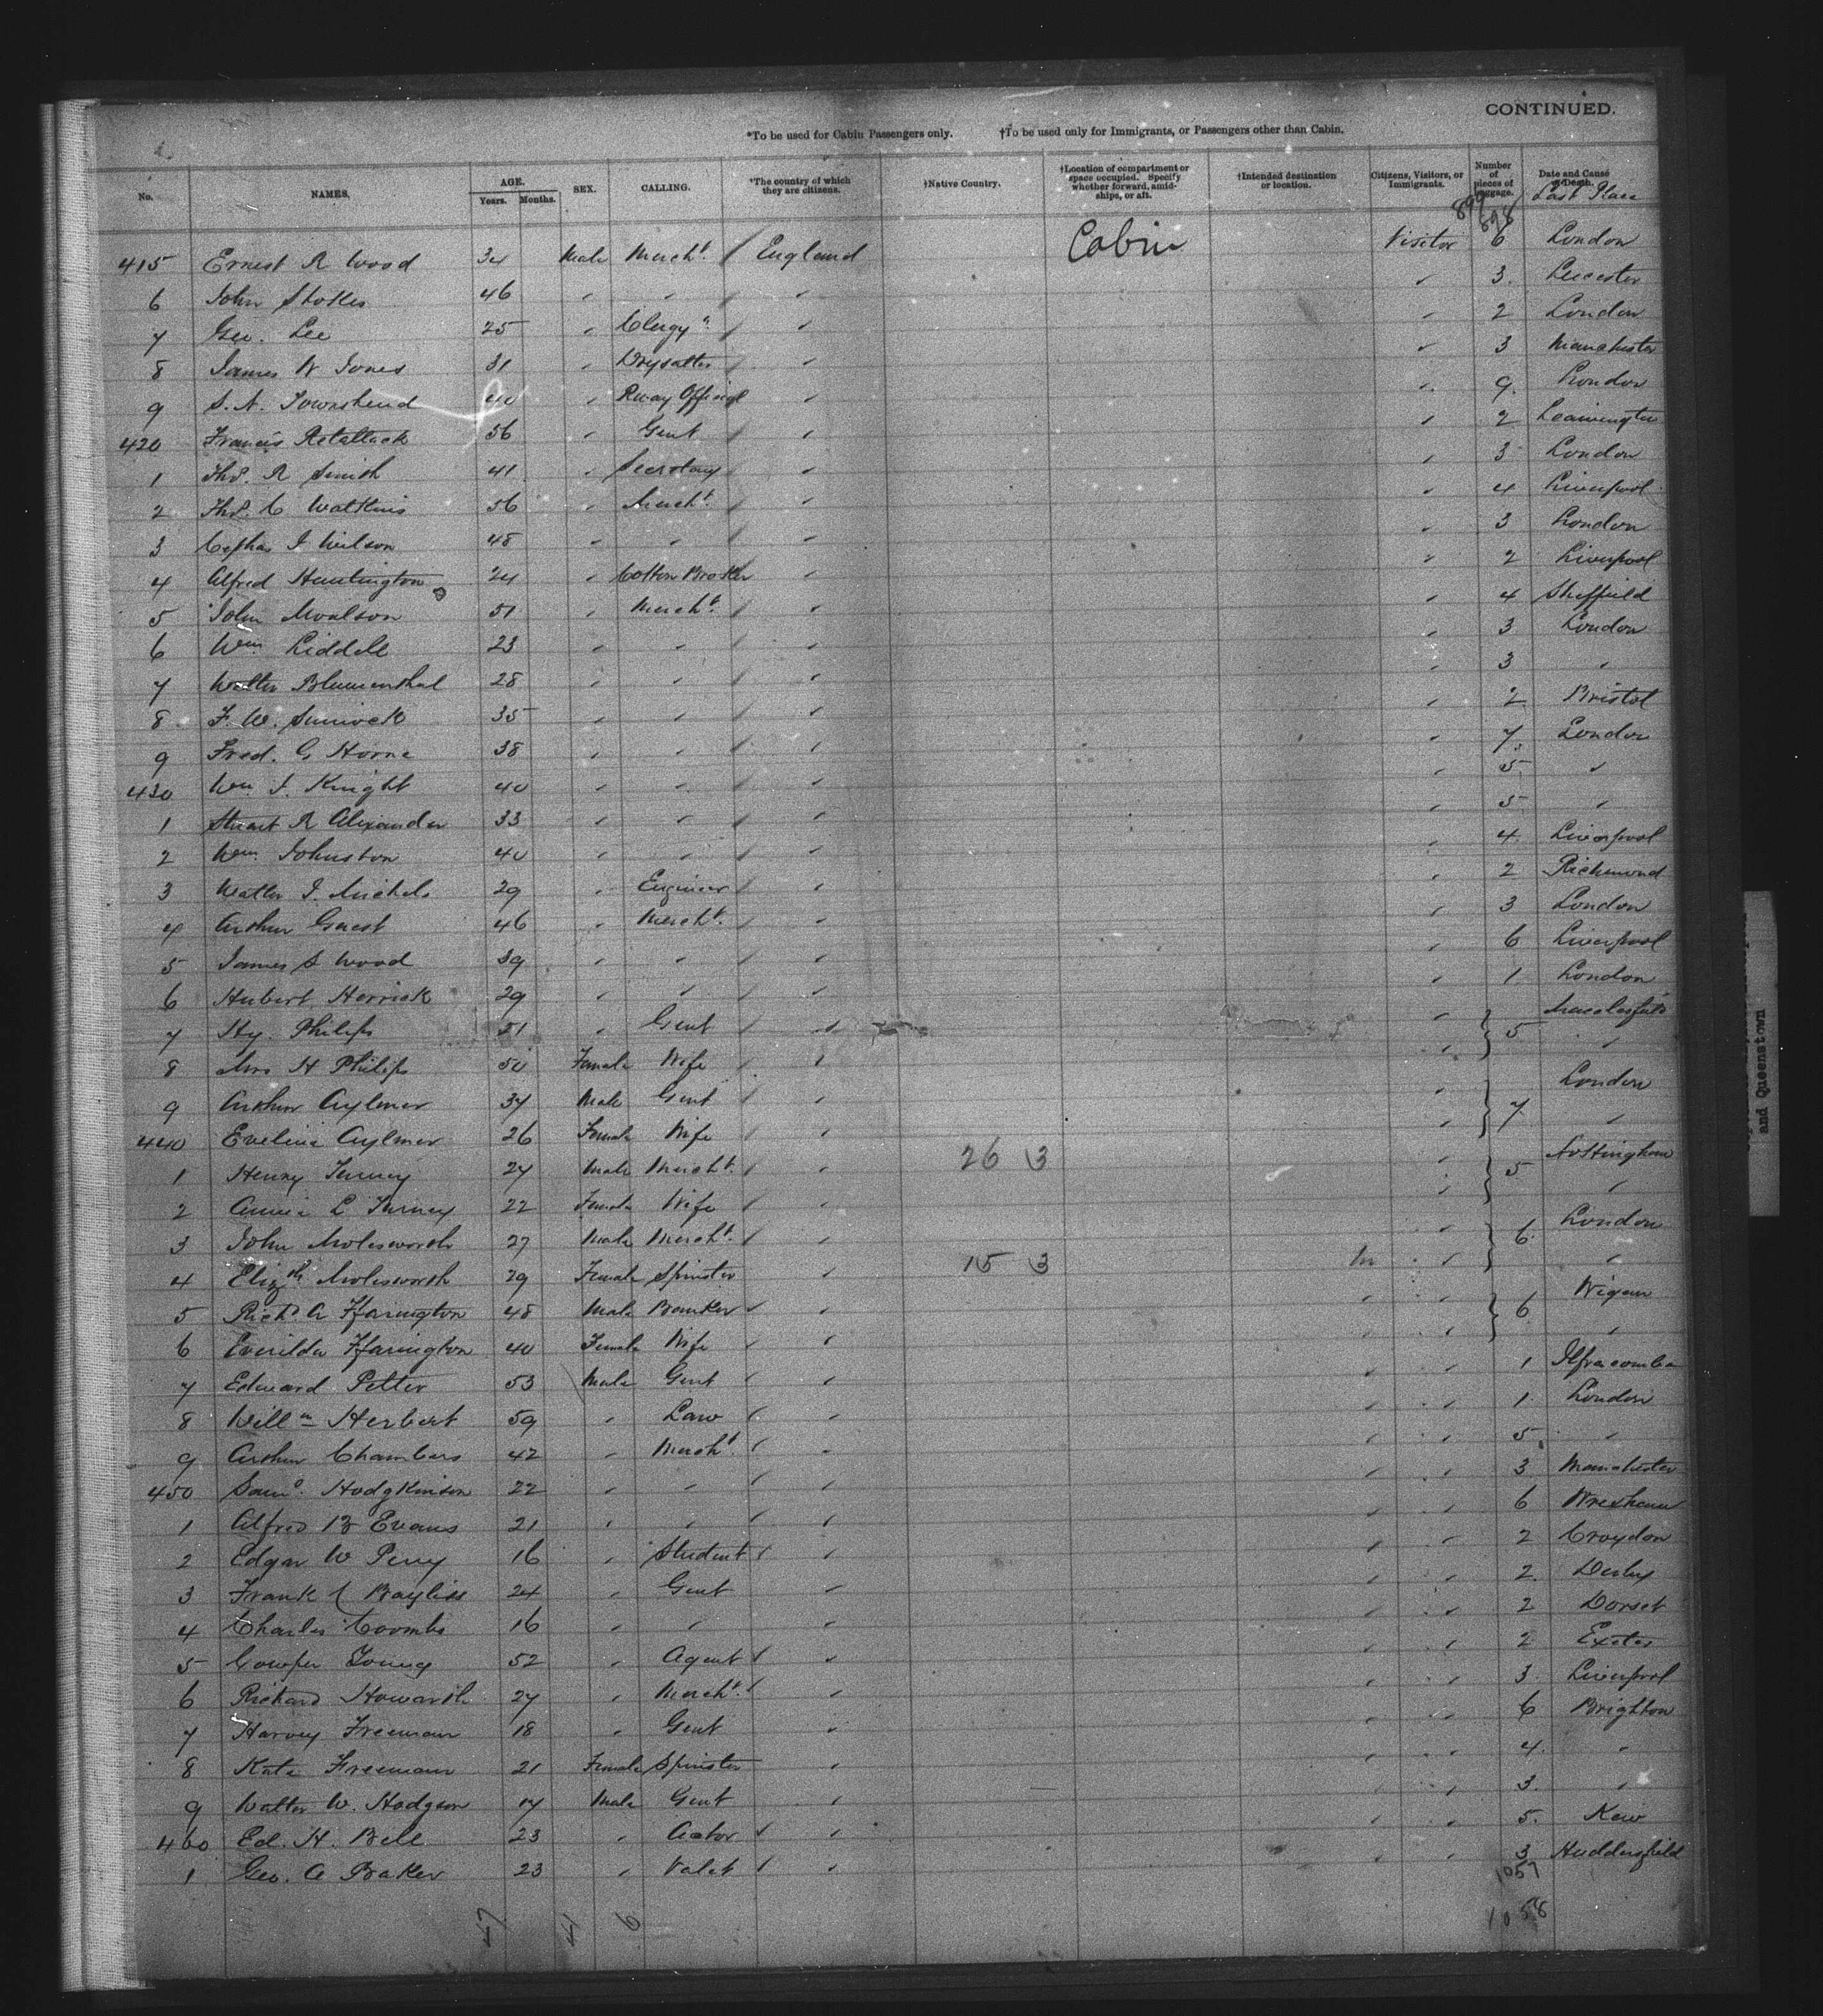 CONTINUED.
*To be used for Cabin Passengers only. †To be used only for Immigrants, or Passengers other than Cabin.
No. NAMES. AGE. Years. Months. SEX. CALLING. *The country of which they are citizens. †Native Country. †Location of compartment or space occupied. Specify whether forward, amidships, or aft. †Intended destination or location. Citizens, Visitors, or Immigrants. Number of pieces of baggage. Date and Cause of Death.
Last Place
899 898
415 Ernest R Wood 34 Male Mercht. England Cabin Visitor 6 London
6 John Stokes 46 " " " " 3 Leicester
7 Geo. Lee 25 " Clergyn " " 2 London
8 James W Jones 31 " Drysalter " " 3 Manchester
9 S. N. Townshend 40 " Rway Official " " 9 London
420 Francis Retallack 56 " Gent " " 2 Leamington
1 Thos. R Smith 41 " Secretary " " 3 London
2 Thos. C Watkins 56 " Mercht. " " 4 Liverpool
3 Cephas J Wilson 48 " " " " 3 London
4 Alfred Huntington 24 " Cotton Broker " " 2 Liverpool
5 John Moalson 51 " Mercht. " " 4 Sheffield
6 Wm Liddell 23 " " " " 3 London
7 Walter Blumenthal 28 " " " " 3 "
8 F. W. 35 " " " " 2 Bristol
9 Fred. G Horne 38 " " " " 7 London
430 Wm. J. Knight 40 " " " " 5 "
1 Stuart R Alexander 33 " " " " 5 "
2 Wm. Johnston 40 " " " " 4 Liverpool
3 Walter J. Michels 29 " Engineer " " 2 Richmond
4 Arthur Guest 46 " Mercht. " " 3 London
5 James S Wood 39 " " " " 6 Liverpool
6 Hubert Herrick 29 " " " " 1 London
7 Hy. Philips 51 " Gent " " 5 Macclesfield
8 Mrs H Philips 50 Female Wife " " "
9 Arthur Aylmer 34 Male Gent " " 7 London
440 Evelina Aylmer 26 Female Wife " " "
1 Henry Turney 27 Male Mercht. " 26 3 " 5 Nottingham
2 Annie L Turney 22 Female Wife " " "
3 John Molesworth 27 Male Mercht. " " 6 London
4 Elizth Molesworth 29 Female Spinster " 15 3 " "
5 Richd A Ffarington 48 Male Banker " " 6 Wigan
6 Everilda Ffarington 40 Female Wife " " "
7 Edward Petter 53 Male Gent " " 1 Ilfracombe
8 Willm Herbert 59 " Law " " 1 London
9 Arthur Chambers 42 " Mercht. " " 5 "
450 Saml. Hodgkinson 22 " " " " 3 Manchester
1 Alfred B Evans 21 " " " " 6 Wrexham
2 Edgar W Perry 16 " Student " " 2 Croydon
3 Frank Bayliss 24 " Gent " " 2 Derby
4 Charles Coombs 16 " " " " 2 Dorset
5 Cowper Young 52 " Agent " " 2 Exeter
6 Richard Howarth 27 " Mercht. " " 3 Liverpool
7 Harvey Freeman 18 " Gent " " 6 Brighton
8 Kate Freeman 21 Female Spinster " " 4 "
9 Walter W. Hodgson 17 Male Gent " " 3 "
460 Ed. H. Bell 23 " Actor " " 5 Kew
1 Geo. A Baker 23 " Valet " " 3 Huddersfield
1057
47 41 6 1058
and Queenstown